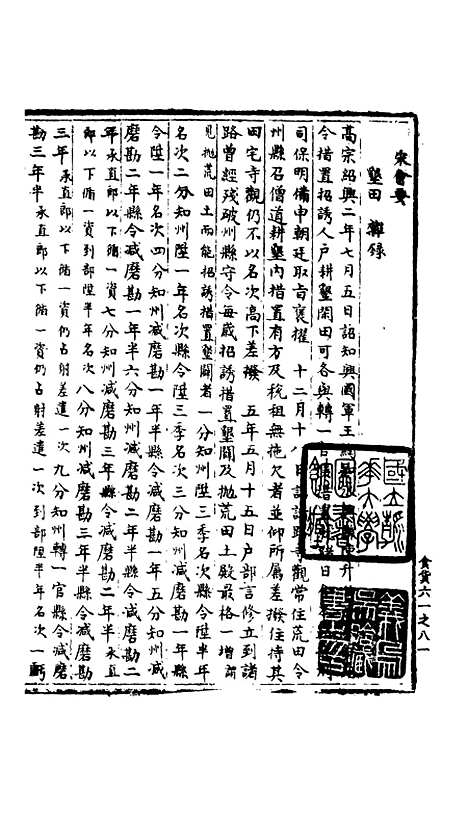 宋會要
墾田 雜錄
高宗紹興二年七月五日詔知興國軍王綯
令措置招誘人戶耕墾閑田可各與轉一官
司保明備申朝廷取旨褒擢 十二月十八日詔諸路寺觀常住荒田令
州縣召僧道耕墾內措置有方及稅租無拖欠者並仰所屬差撥住持其
田宅寺觀仍不以名次高下差撥 五年五月十五日戶部言修立到諸
路曾經殘破州縣守令每歲招誘措置墾闢及拋荒田土殿最格一增謂
見拋荒田土而能招誘措置墾闢者一分知州陞三季名次縣令陞半年
名次二分知州陞一年名次縣令陞三季名次三分知州減磨勘一年縣
令陞一年名次四分知州減磨勘一年半縣令減磨勘一年五分知州減
磨勘二年縣令減磨勘一年半六分知州減磨勘二年半縣令減磨勘二
年承直郎以下循一資七分知州減磨勘三年縣令減磨勘二年半承直
郎以下循一資到部陞半年名次八分知州減磨勘三年半縣令減磨勘
三年承直郎以下循一資仍占射差遣一次九分知州轉一官縣令減磨
勘三年半承直郎以下循一資仍占射差遣一次到部陞半年名次一虧
食貨六一之八一
國立浙江大學